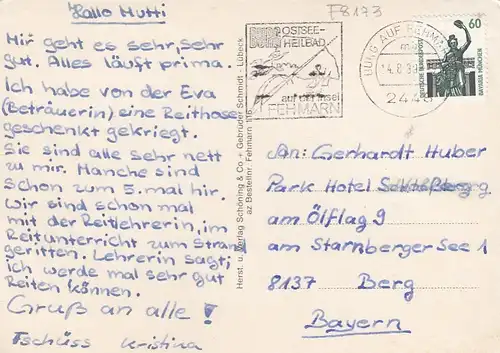 Hallo Mutti
Mir geht es sehr, sehr
gut. Alles läuft prima.
Ich habe von der Eva
(Beträuerin) eine Reithose
geschenkt gekriegt.
Sie sind alle sehr nett
zu mir. Manche sind
schon zum 5. mal hir.
Wir sind schon mal
mit der Reitlehrerin, im
Reitunterricht zum Strand
geritten. Lehrerin sagt;
ich werde mal sehr gut
Reiten können.
Gruß an alle!
Tschüss Kristina
Herst. u. Verlag Schöning & Co + Gebrüder Schmidt - Lübeck
az Bestellnr. Fehmarn
F8173
BURG
OSTSEE-
HEILBAD
auf der Insel
FEHMARN
BURG AUF FEHMARN
14.8.89
2448
60
DEUTSCHE BUNDESPOST
BAVARIA MÜNCHEN
An: Gerhardt Huber
Park Hotel
am Ölflag 9
am Starnberger See 1
8137 Berg
Bayern